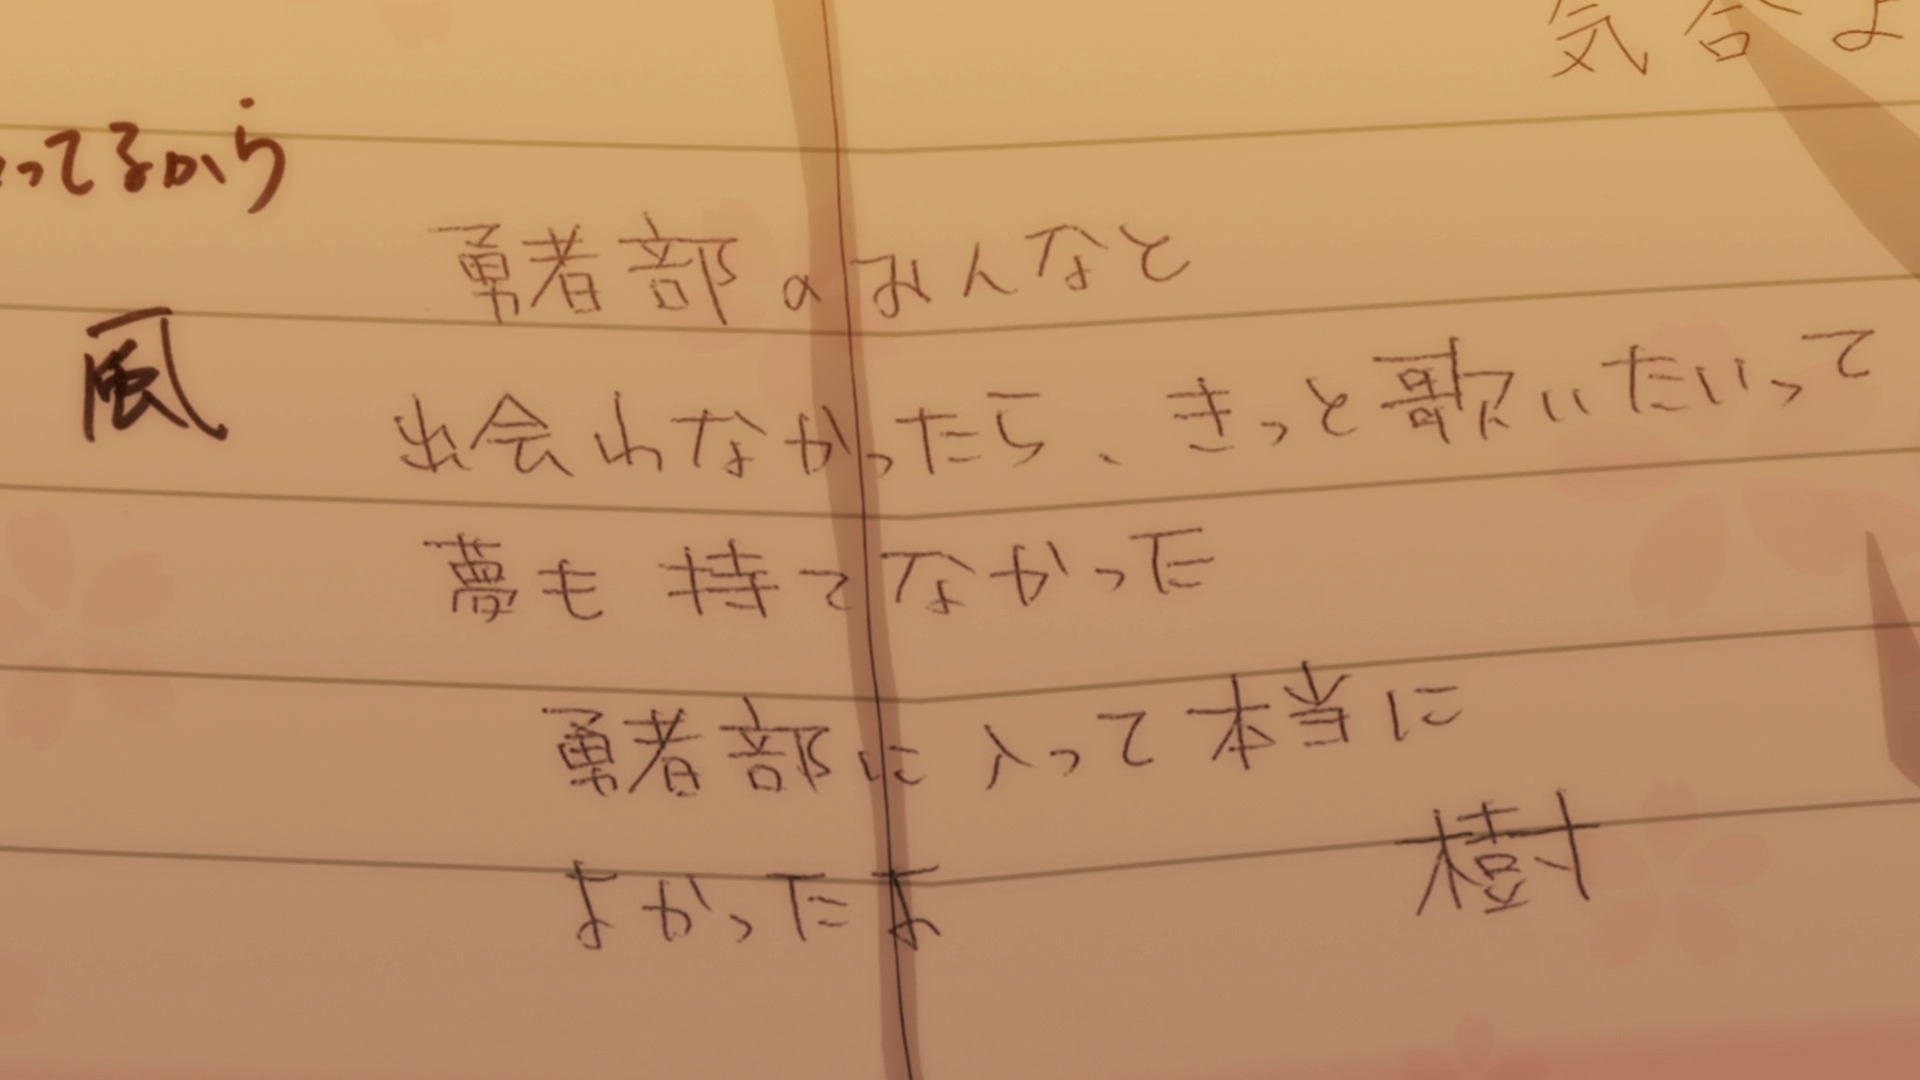 気合よ
ってるから
風
勇者部のみんなと
出会わなかったら、きっと歌いたいって
夢も持てなかった
勇者部に入って本当に
よかったよ
樹